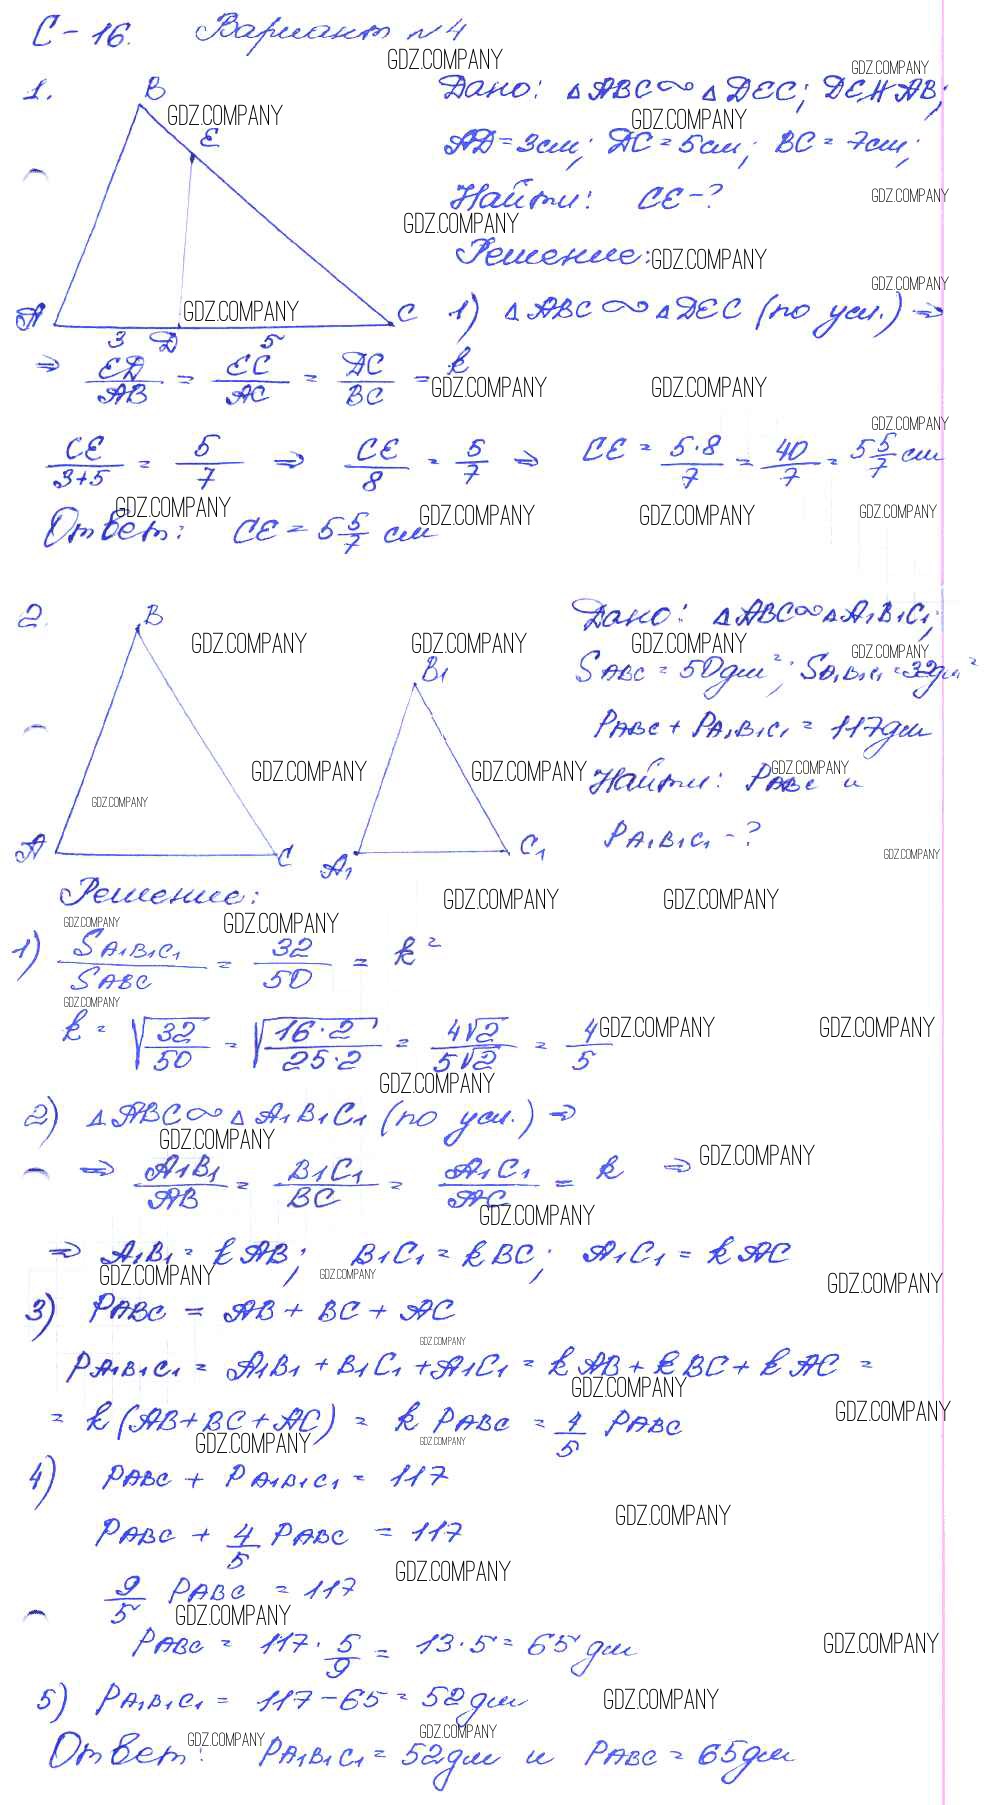 С-16. Вариант №4
GDZ.COMPANY
1. B E A 3 D 5 C
Дано: △ABC∾△DEC; DE∦AB;
AD=3см; DC=5см; BC=7см;
Найти: CE-?
Решение:
1) △ABC∾△DEC (по усл.) ⇒
⇒ ED/AB = EC/AC = DC/BC = k
CE/(3+5) = 5/7 ⇒ CE/8 = 5/7 ⇒ CE = (5·8)/7 = 40/7 = 5 5/7 см
Ответ: CE = 5 5/7 см
2. B A C B₁ A₁ C₁
Дано: △ABC∾△A₁B₁C₁;
SABC = 50дм²; SA₁B₁C₁=32дм²
PABC + PA₁B₁C₁ = 117дм
Найти: PABC и
PA₁B₁C₁ -?
Решение:
1) SA₁B₁C₁/SABC = 32/50 = k²
k = √(32/50) = √((16·2)/(25·2)) = 4√2/5√2 = 4/5
2) △ABC∾△A₁B₁C₁ (по усл.) ⇒
⇒ A₁B₁/AB = B₁C₁/BC = A₁C₁/AC = k ⇒
⇒ A₁B₁ = kAB; B₁C₁ = kBC; A₁C₁ = kAC
3) PABC = AB + BC + AC
PA₁B₁C₁ = A₁B₁ + B₁C₁ + A₁C₁ = kAB + kBC + kAC =
= k(AB+BC+AC) = k PABC = 4/5 PABC
4) PABC + PA₁B₁C₁ = 117
PABC + 4/5 PABC = 117
9/5 PABC = 117
PABC = 117 · 5/9 = 13·5 = 65 дм
5) PA₁B₁C₁ = 117-65 = 52дм
Ответ: PA₁B₁C₁ = 52дм и PABC = 65дм